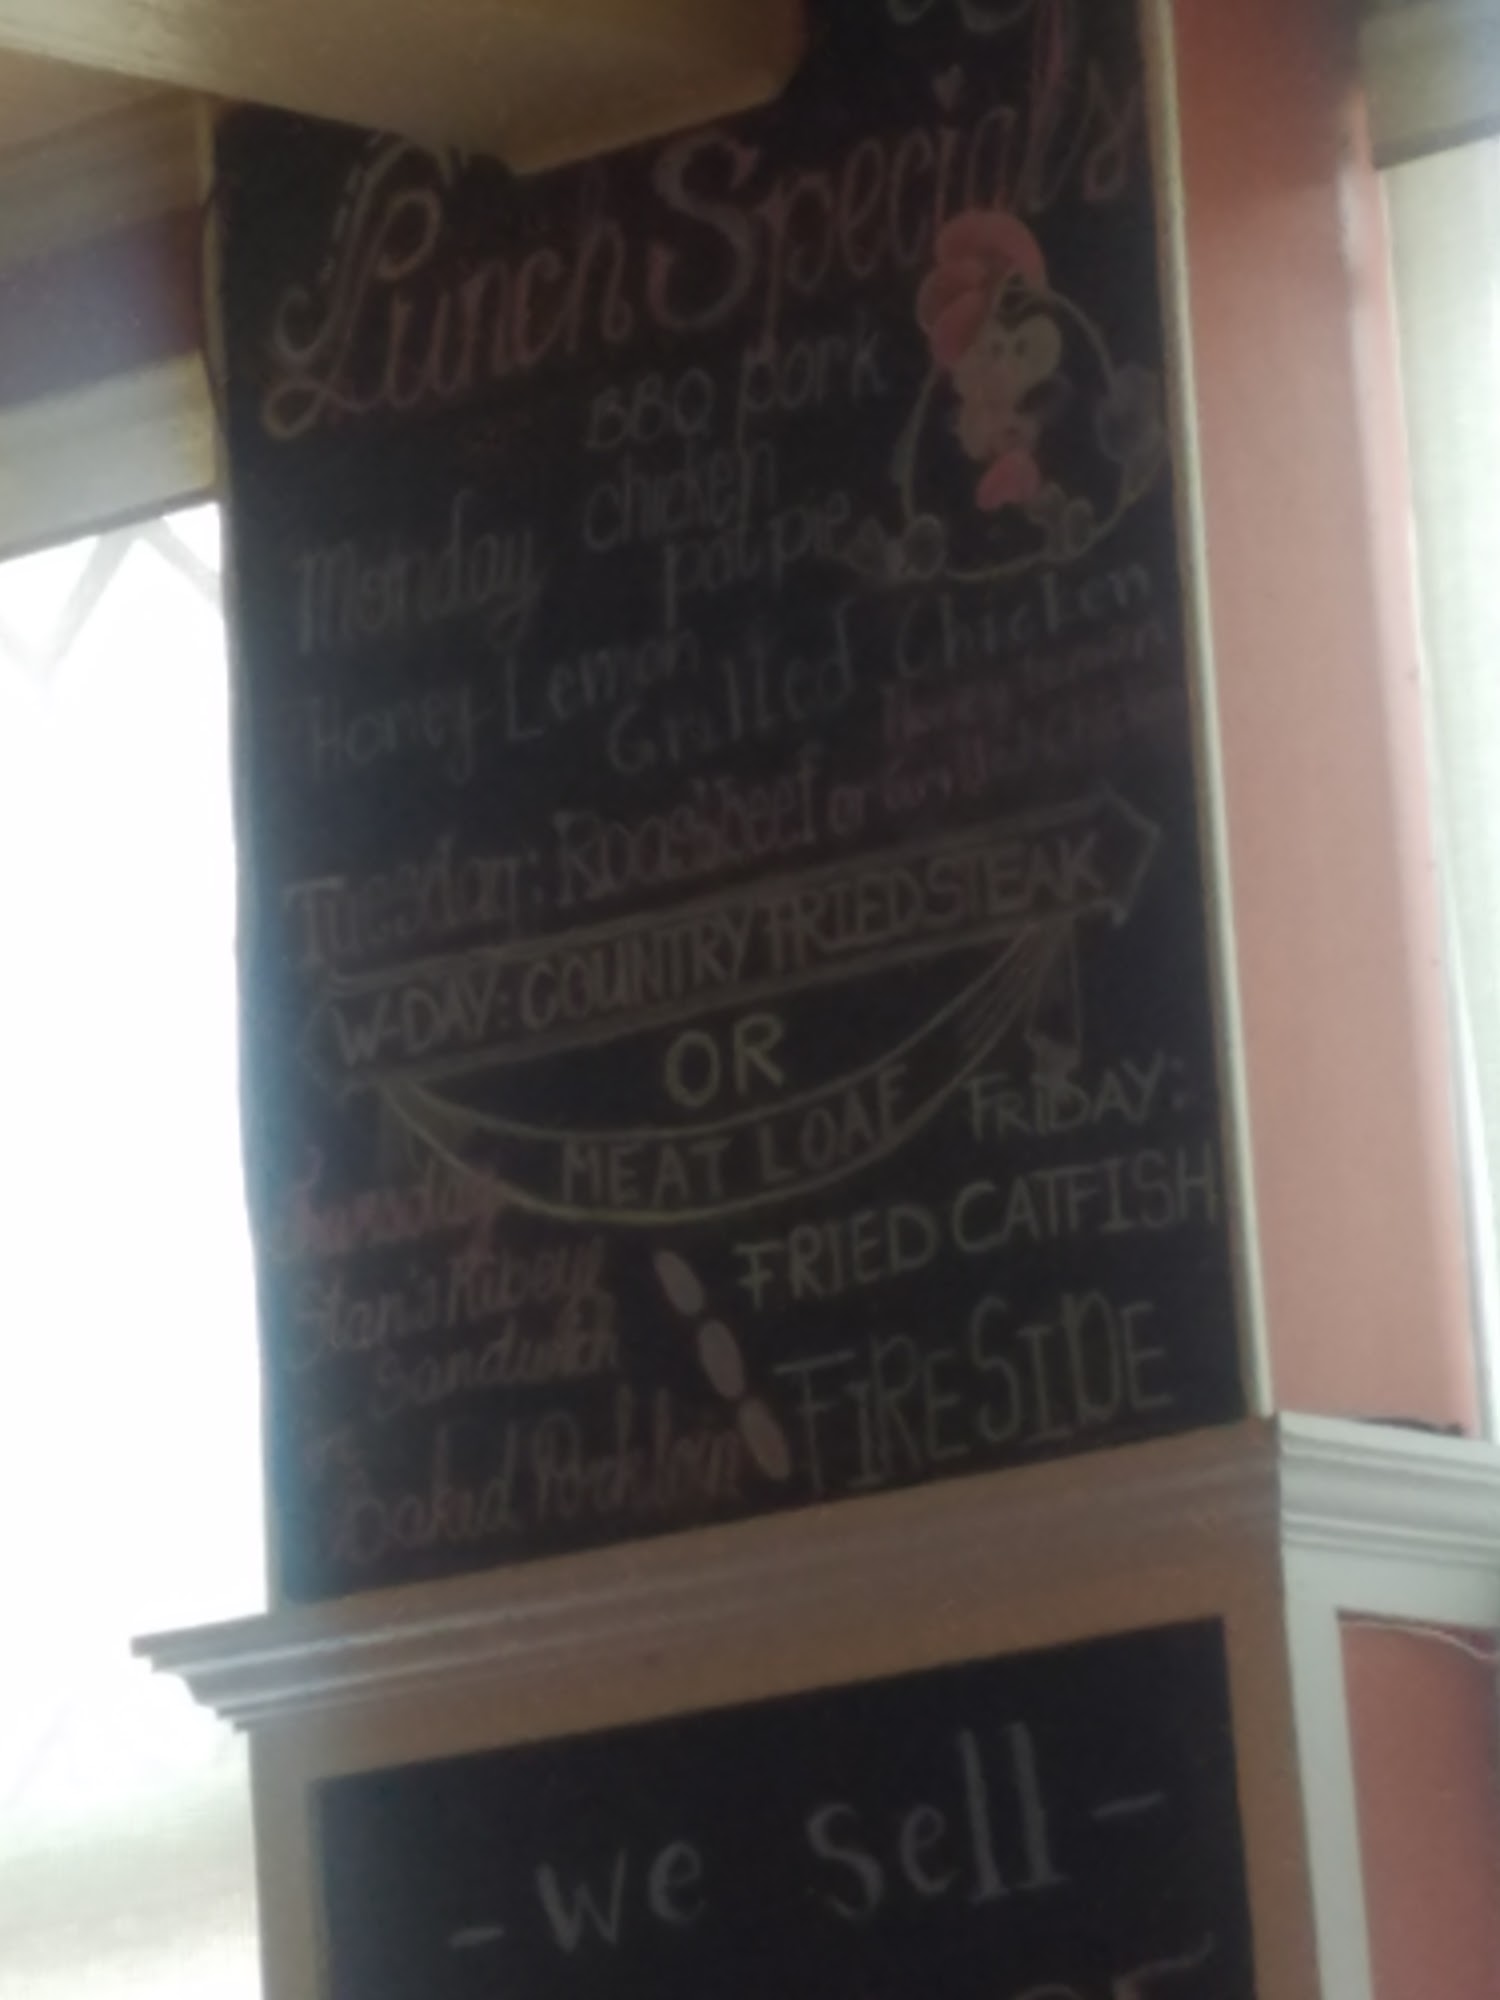 Lunch Specials
BBQ pork
Monday chicken
pot pie
Honey Lemon
Grilled Chicken
Honey Lemon
Tuesday: Roast beef or Grilled Chicken
W-DAY: COUNTRY FRIED STEAK
OR
MEAT LOAF
Thursday
Stan's Ribeye
Sandwich
Baked Pork loin
FRIDAY:
FRIED CATFISH
FIRESIDE
- we sell -